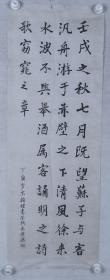 壬戌之秋七月既望蘇子与客
汎舟游于赤壁之下清風徐来
水波不興举酒属客誦明月之詩
歌窈窕之章